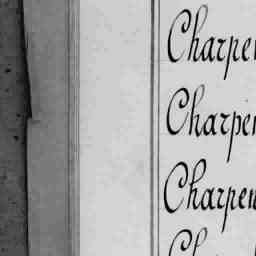 Charpen
Charpen
Charpen
Ch